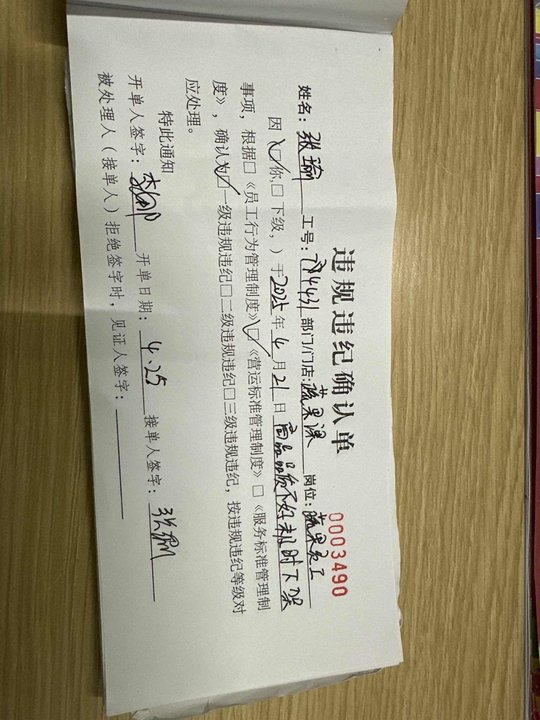 违规违纪确认单
0003490
姓名：张瑜 工号：714431 部门/门店：蔬果课 岗位：蔬果员工
因（☑你，□下级，）于2025年4月21日商品品质不好未及时下架
事项，根据□《员工行为管理制度》☑《营运标准管理制度》□《服务标准管理制
度》，确认为☑一级违规违纪□二级违规违纪□三级违规违纪，按违规违纪等级对
应处理。
特此通知
开单人签字： 开单日期：4.25 接单人签字：
被处理人（接单人）拒绝签字时，见证人签字：